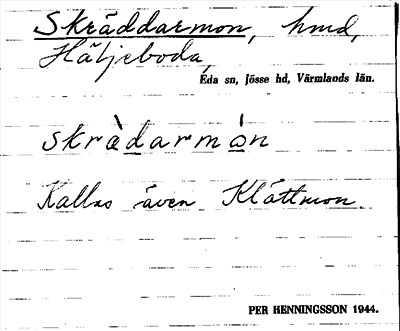 Skräddarmon, hmd,
Häljeboda,
Eda sn, Jösse hd, Värmlands län.
skrà̀darmò̀n
Kallas även Klättmon.
PER HENNINGSSON 1944.